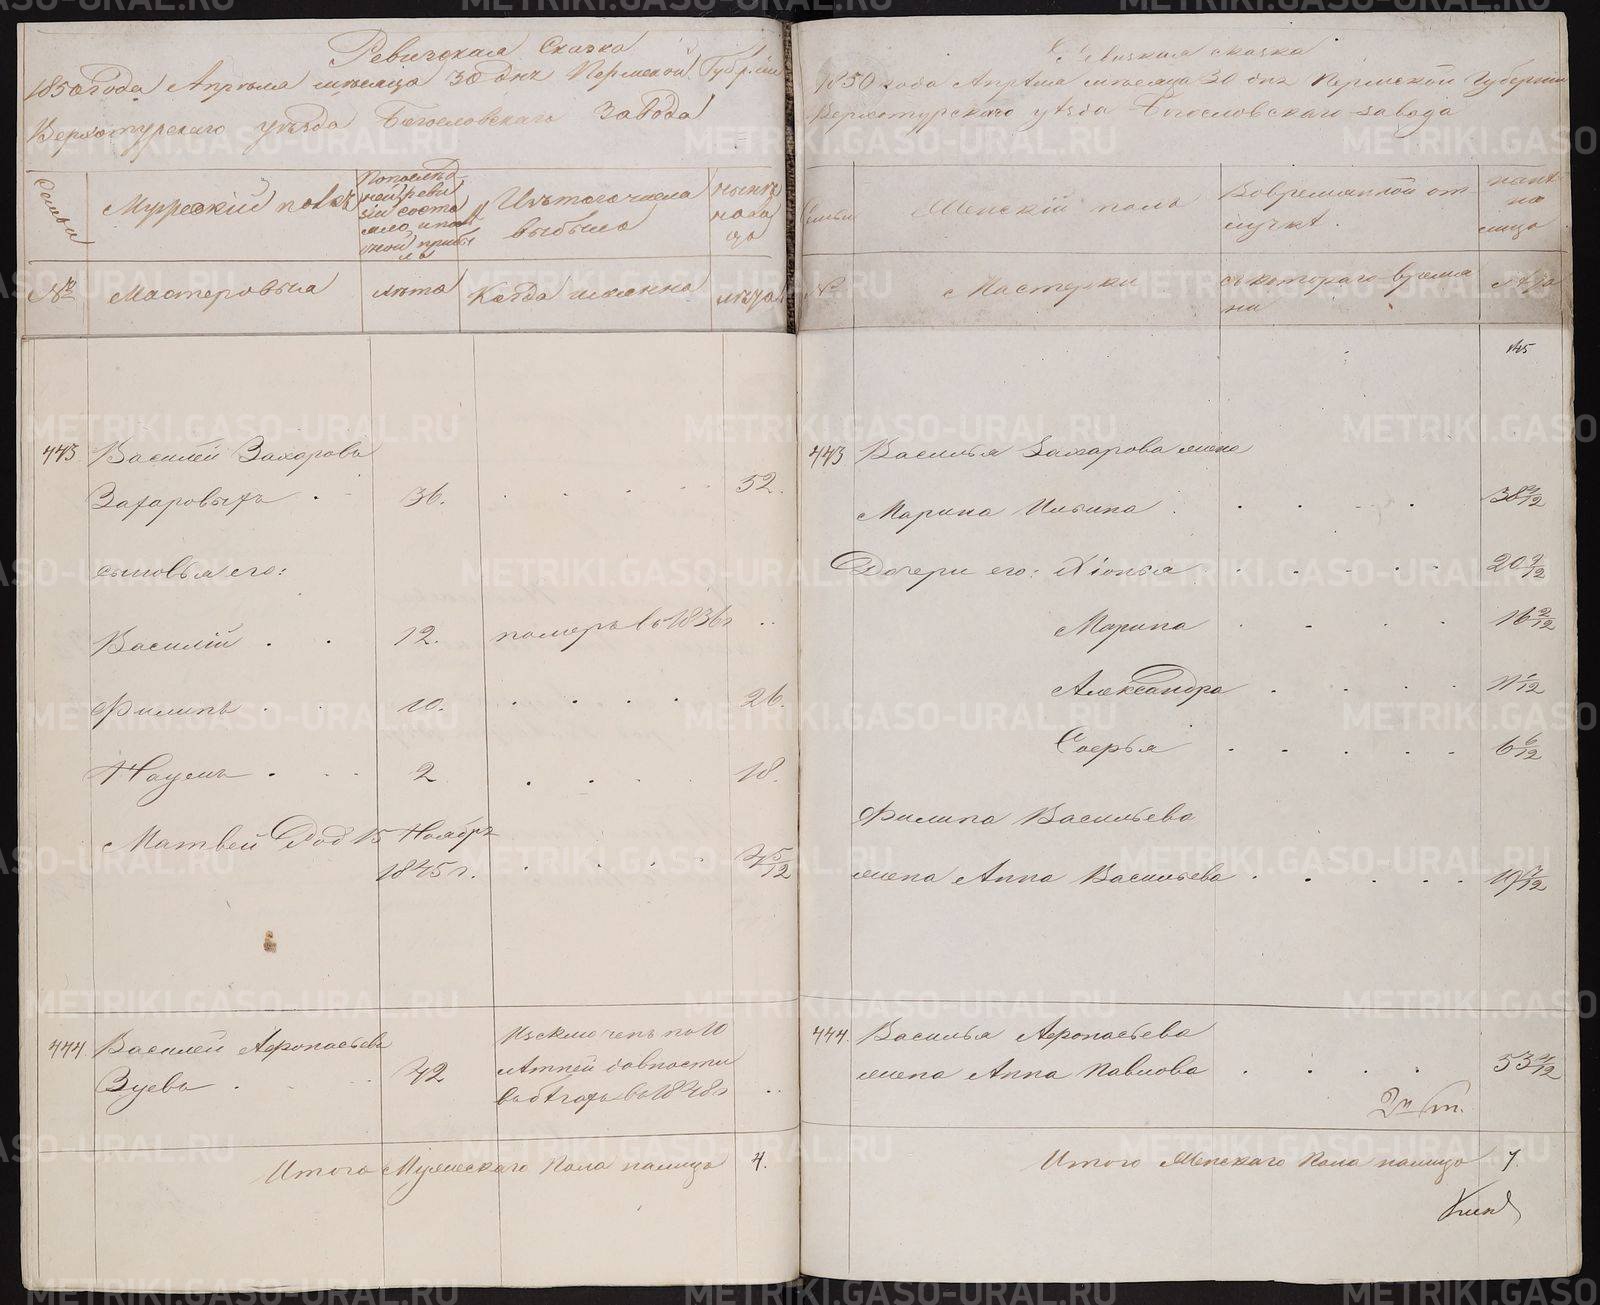 Ревижская Сказка
1850 года Апреля месяца 30 дня Пермской Губернии
Верхотурскаго уезда Богословскаго завода
Семьи
Мужеский полъ
По последней ревизии состояло и после оной прибыло
Изъ того числа выбыло
ныне на лицо
№
Мастеровыя
лета
Когда именно
лета
443. Василей Захаровъ
Захаровыхъ . 36. 52.
сыновья его:
Василий . . 12. померъ въ 1836 г ..
Филипъ . . 10. 26.
Наумъ . . 2 18.
Матвей Род 15 Ноябрь
1845 г. 4 5/12
444. Василей Афонасьевъ
Зуевъ . 42
Изключенъ по 10
летней давности
въ бегахъ въ 1848 г ..
Итого Мужескаго Пола налицо 4.
Ревизкая сказка
1850 года Апреля месяца 30 дня Пермской Губернии
Верхотурскаго уезда Богословскаго завода
Семьи
Женский полъ
Во временной отлучке.
налицо
№
Мастерки
съ котораго времени
лета
145
443 Василья Захарова жена
Марина Ильина . 38 4/12
Дочери его: Хіонья 20 9/12
Марина 16 2/12
Александра 11 1/12
Софья 6 6/12
Филипа Васильева
жена Анна Васильева 19 7/12
444. Василья Афонасьева
жена Анна Павлова 53 4/12
Итого Женскаго Пола налицо 7.
METRIKI.GASO-URAL.RU